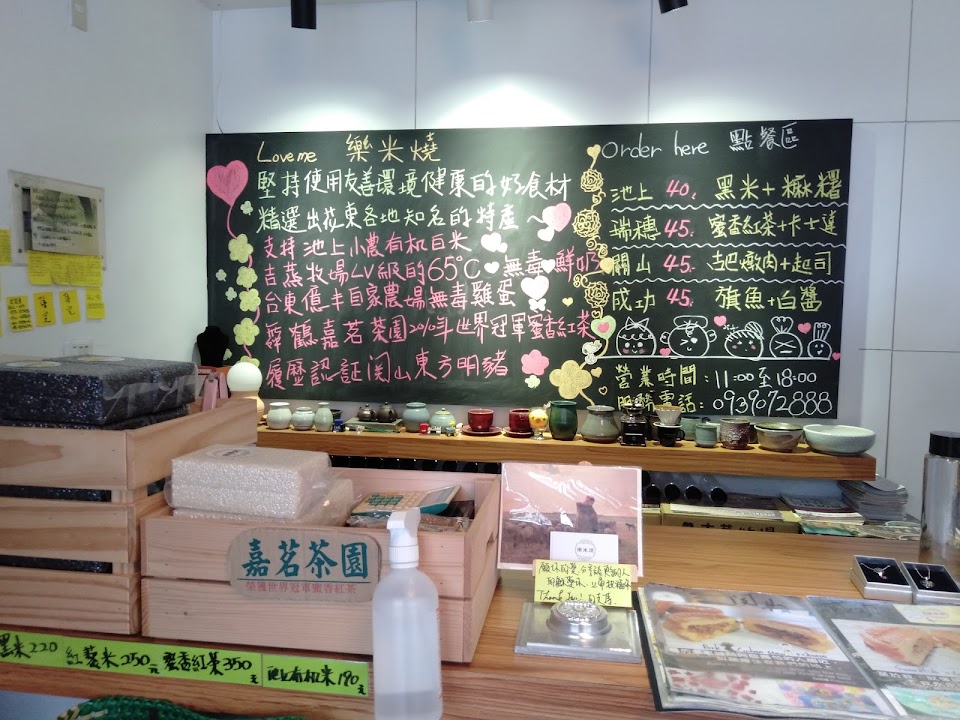 Love me 樂米燒
堅持使用友善環境健康的好食材
精選出花東各地知名的特產～
支持池上小農有机白米
吉蒸牧場LV級的65°C無毒鮮奶
台東億丰自家農場無毒雞蛋
舞鶴嘉茗茶園2010年世界冠軍蜜香紅茶
履歷認証関山東方明豬
Order here 點餐區
池上 40. 黑米+麻糬
瑞穗 45. 蜜香紅茶+卡士達
關山 45. 嫩肉+起司
成功 45. 旗魚+白醬
營業時間:11:00至18:00
服務電話: 0939072888
嘉茗茶園
榮獲世界冠軍蜜香紅茶
Thank you!
黑米220 紅藜米250元 蜜香紅茶350元
池上有机米190元